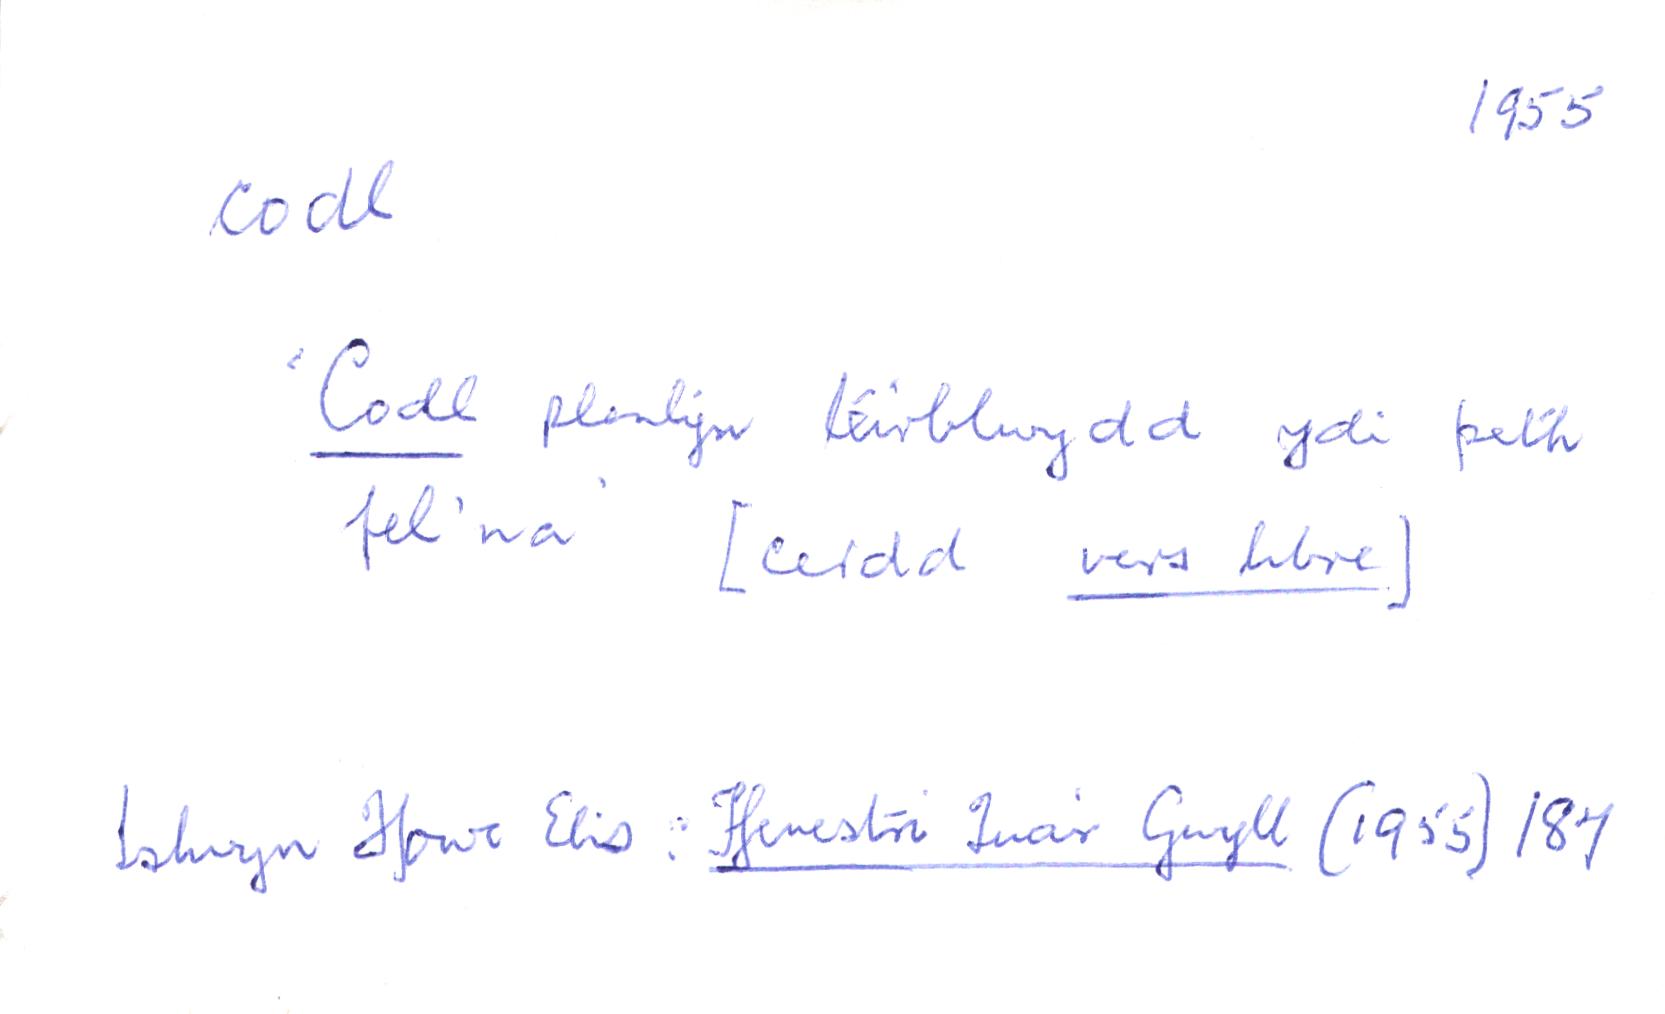 1955
codl
'Codl plentyn teirblwydd ydi peth
fel'na' [cerdd vers libre]
Islwyn Ffowc Elis : Ffenestri Tua'r Gwyll (1955) 187